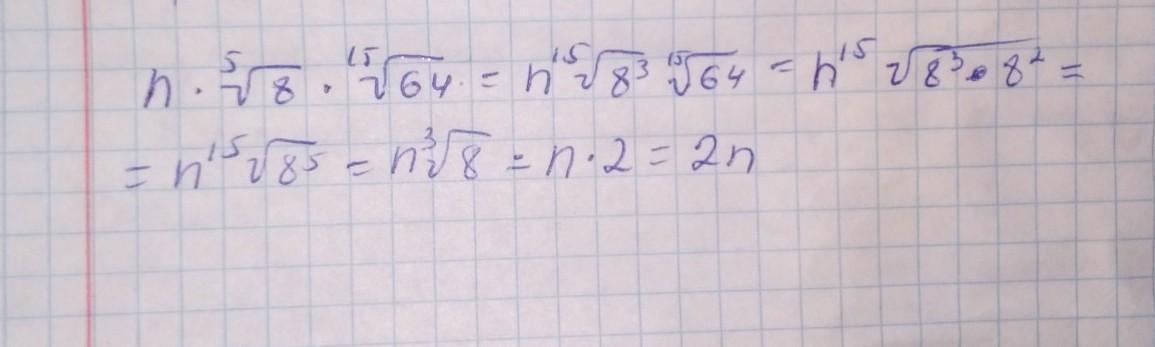 n · ⁵√8 · ¹⁵√64 = n ¹⁵√8³ ¹⁵√64 = n ¹⁵√8³·8² =
= n ¹⁵√8⁵ = n ³√8 = n·2 = 2n